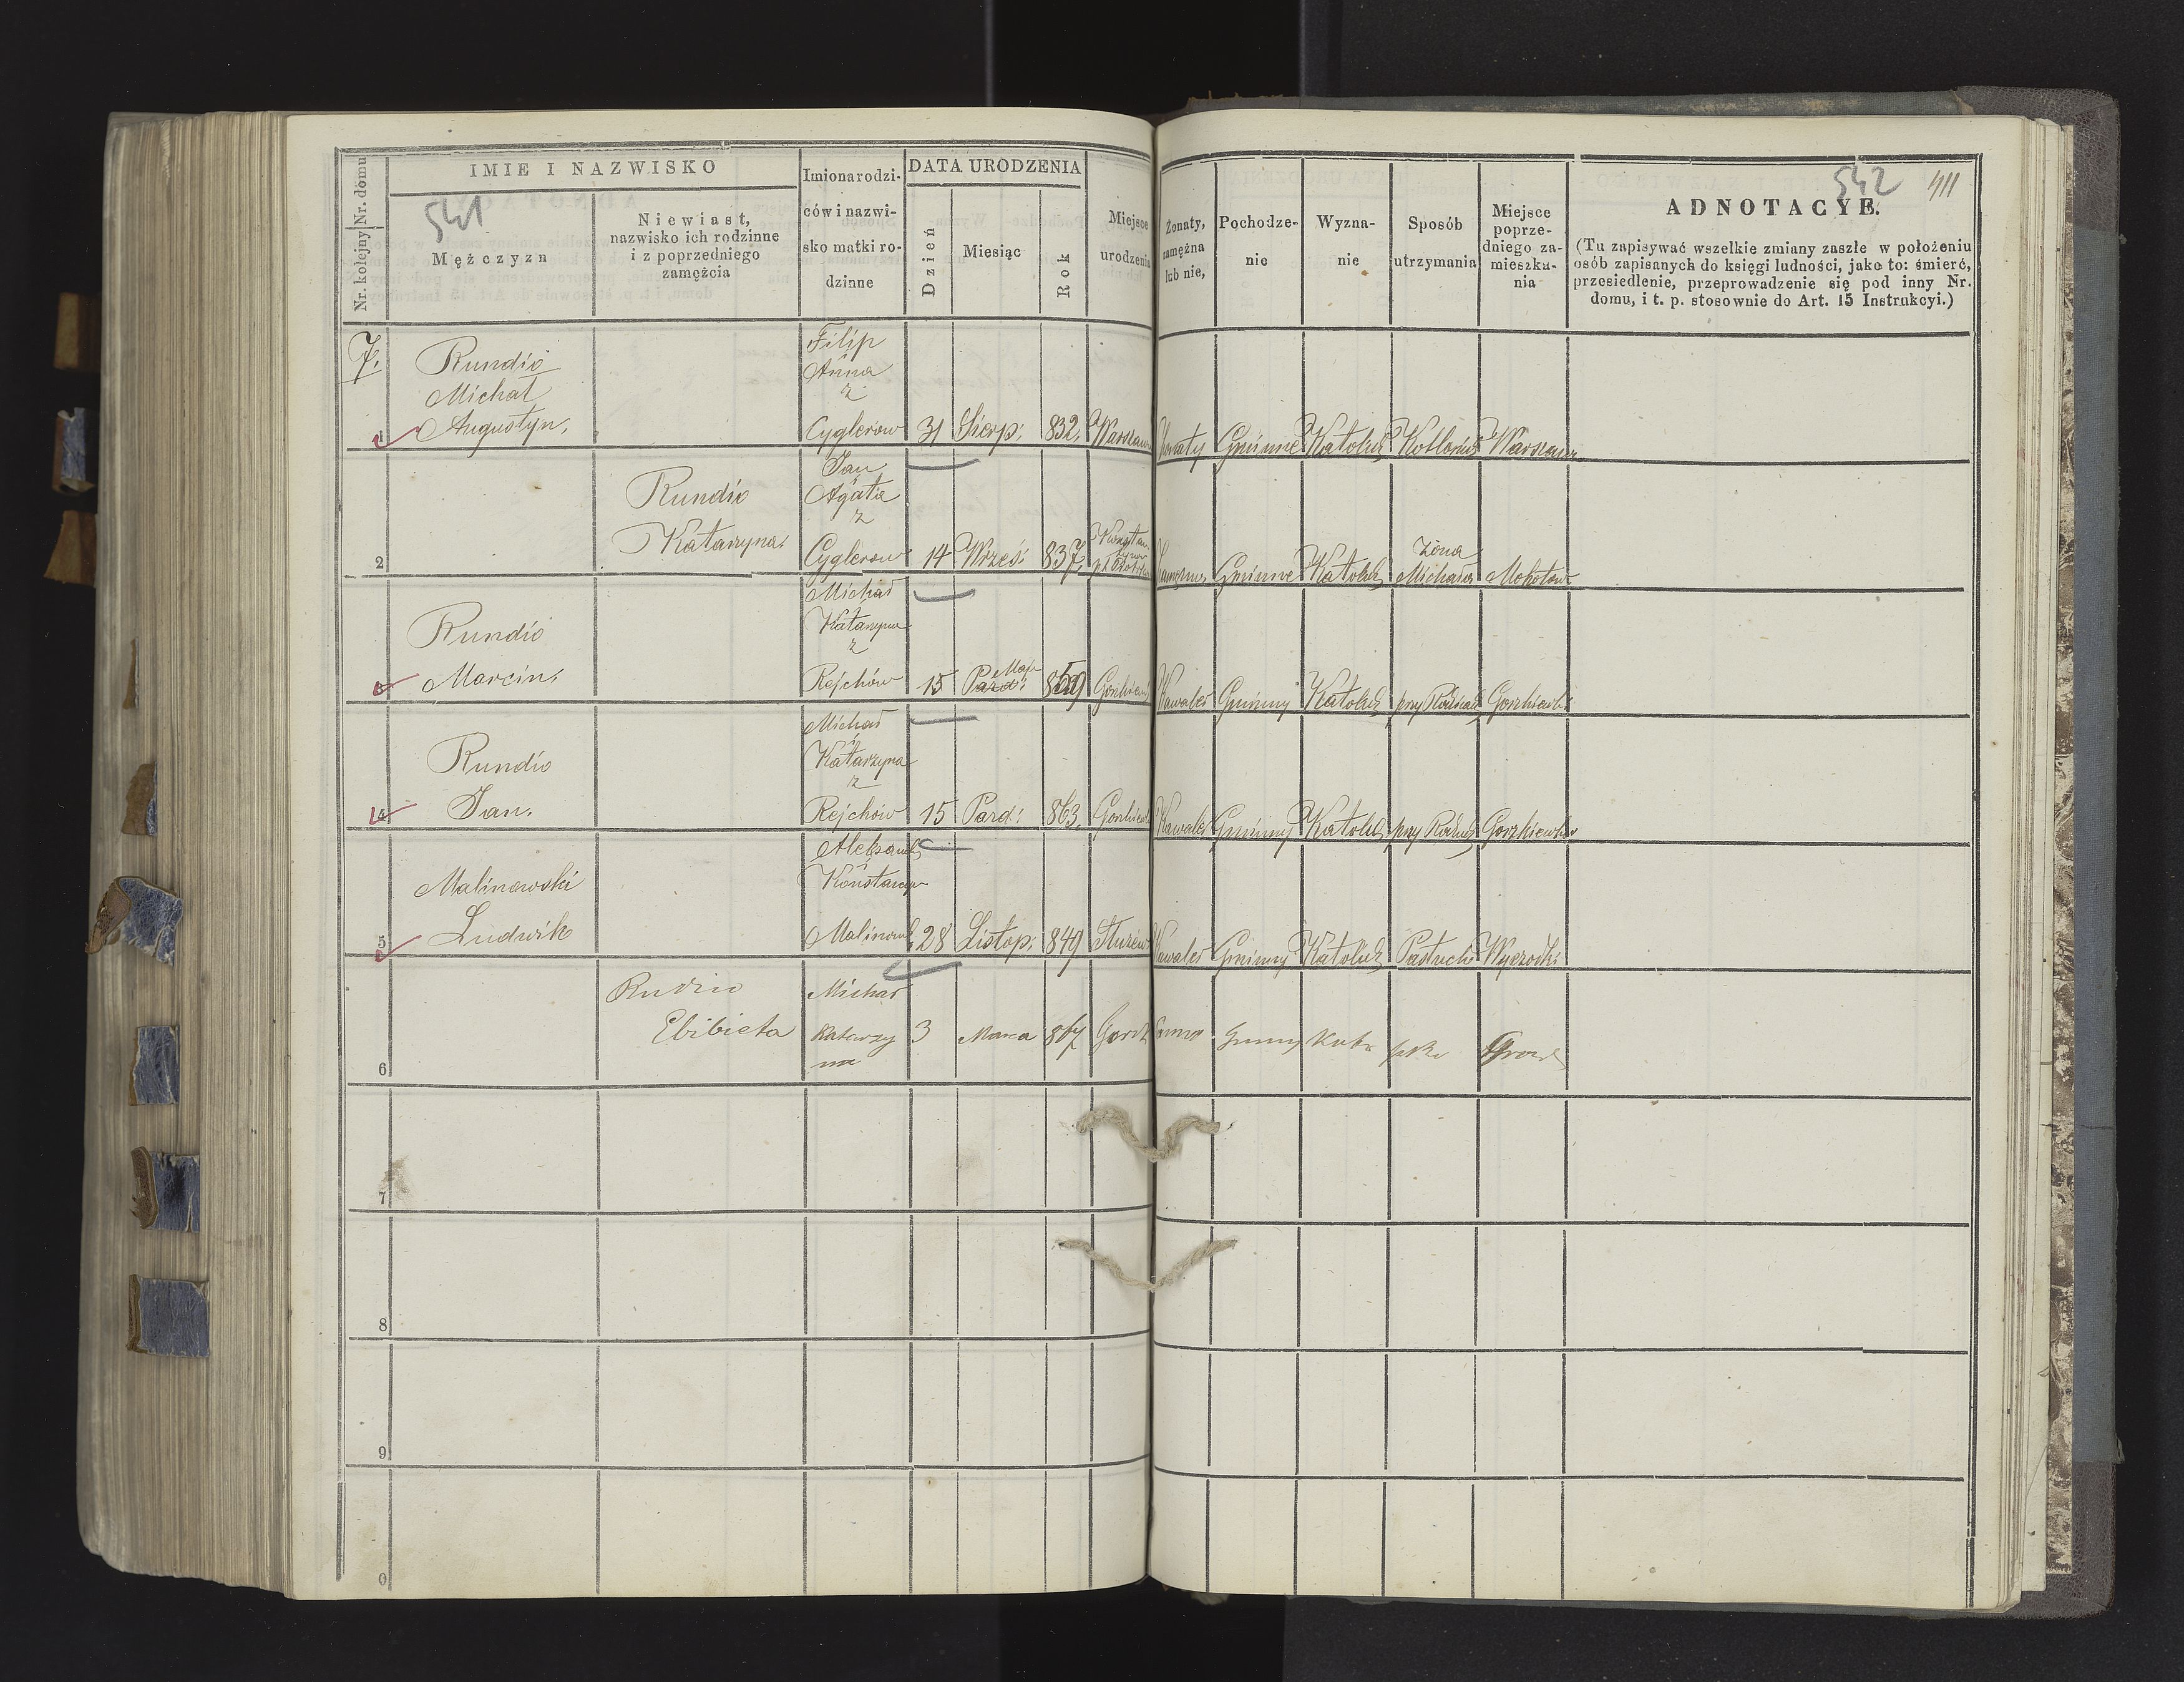 Nr. kolejny Nr. domu
IMIE I NAZWISKO
541
Mężczyzn
Niewiast,
nazwisko ich rodzinne
i z poprzedniego
zamężcia
Imiona rodzi-
ców i nazwi-
sko matki ro-
dzinne
DATA URODZENIA
Dzień
Miesiąc
Rok
Miejsce
urodzenia
Żonaty,
zamężna
lub nie,
Pochodze-
nie
Wyzna-
nie
Sposób
utrzymania
Miejsce
poprze-
dniego za-
mieszka-
nia
542 411
ADNOTACYE.
(Tu zapisywać wszelkie zmiany zaszłe w położeniu
osób zapisanych do księgi ludności, jako to: śmierć,
przesiedlenie, przeprowadzenie się pod inny Nr.
domu, i t. p. stosownie do Art. 15 Instrukcyi.)
7.
1
Rundio
Michał
Augustyn.
Filip
Anna
z
Cyglerow
31 Sierp: 832. Warszawa
Żonaty Gminne Katolik Warszawa
2
Rundio
Katarzyna.
Jan
Agata
z
Cyglerow
14 Wrześ: 837.
Gminne Katolik
Żona
Michała
Mokotow
3
Rundio
Marcin.
Michał
Katarzyna
z
Rejchów
15 Paźd: Maja 859
Kawaler Gminny Katolik
4
Rundio
Jan.
Michał
Katarzyna
z
Rejchów
15 Paźd: 863.
Kawaler Gminny Katolik
5
Malinowski
Ludwik
Konstancya
28 Listop: 849
Kawaler Gminny Katolik Pastuch
6
Rudzio
Elzbieta
Michał
Katarzy
na
3 Marca 867
7
8
9
0